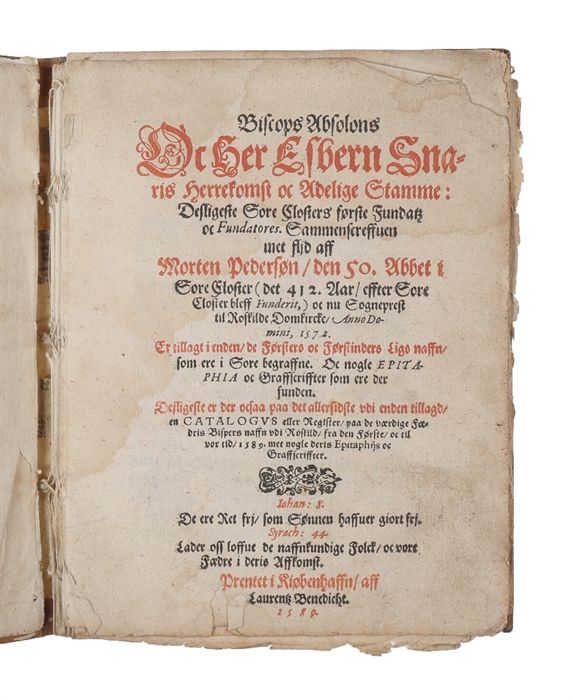 Biscops Absolons
Oc Her Esbern Sna-
ris Herrekomst oc Adelige Stamme:
Desligeste Sore Closters første Fundatz
oc Fundatores. Sammenscreffuen
met flid aff
Morten Pedersøn / den 50. Abbet i
Sore Closter ( det 412. Aar / effter Sore
Closter bleff Funderit, ) oc nu Sogneprest
til Roskilde Domkircke / Anno Do-
mini, 1572.
Er tillagt i enden / de Førsters oc Førstinders Ligs naffn /
som ere i Sore begraffne. Oc nogle EPITA-
PHIA oc Graffscriffter som ere der
funden.
Desligeste er der ocsaa paa det allersidste vdi enden tillagd /
en CATALOGVS eller Register / paa de værdige Fæ-
dris Bispers naffn vdi Roskild / fra den Første / oc til
vor tid / 1589. met nogle deris Epitaphijs oc
Graffscriffter.
Iohan: 8.
De ere Ret frj / som Sønnen haffuer giort frj.
Syrach: 44.
Lader oss loffue de naffnkundige Folck / oc vore
Fædre i deris Affkomst.
Prentet i Kiøbenhaffn / aff
Laurentz Benedicht.
1589.